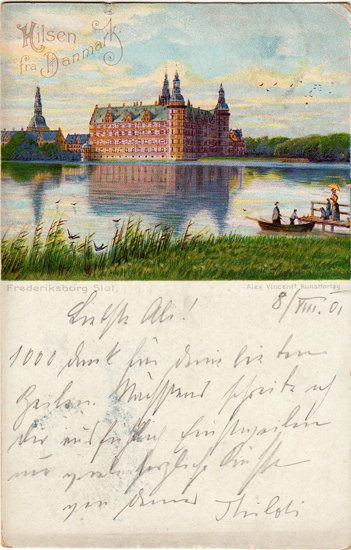 Hilsen
fra Danmark
Frederiksborg Slot.
Alex Vincents Kunstforlag
Liebste Ali!
8/VIII. 01
1000 dank für deine lieben
Zeilen. Nächstens schreibe ich
dir ausführlich. Einstweilen
nur viele herzliche Grüsse
von deiner